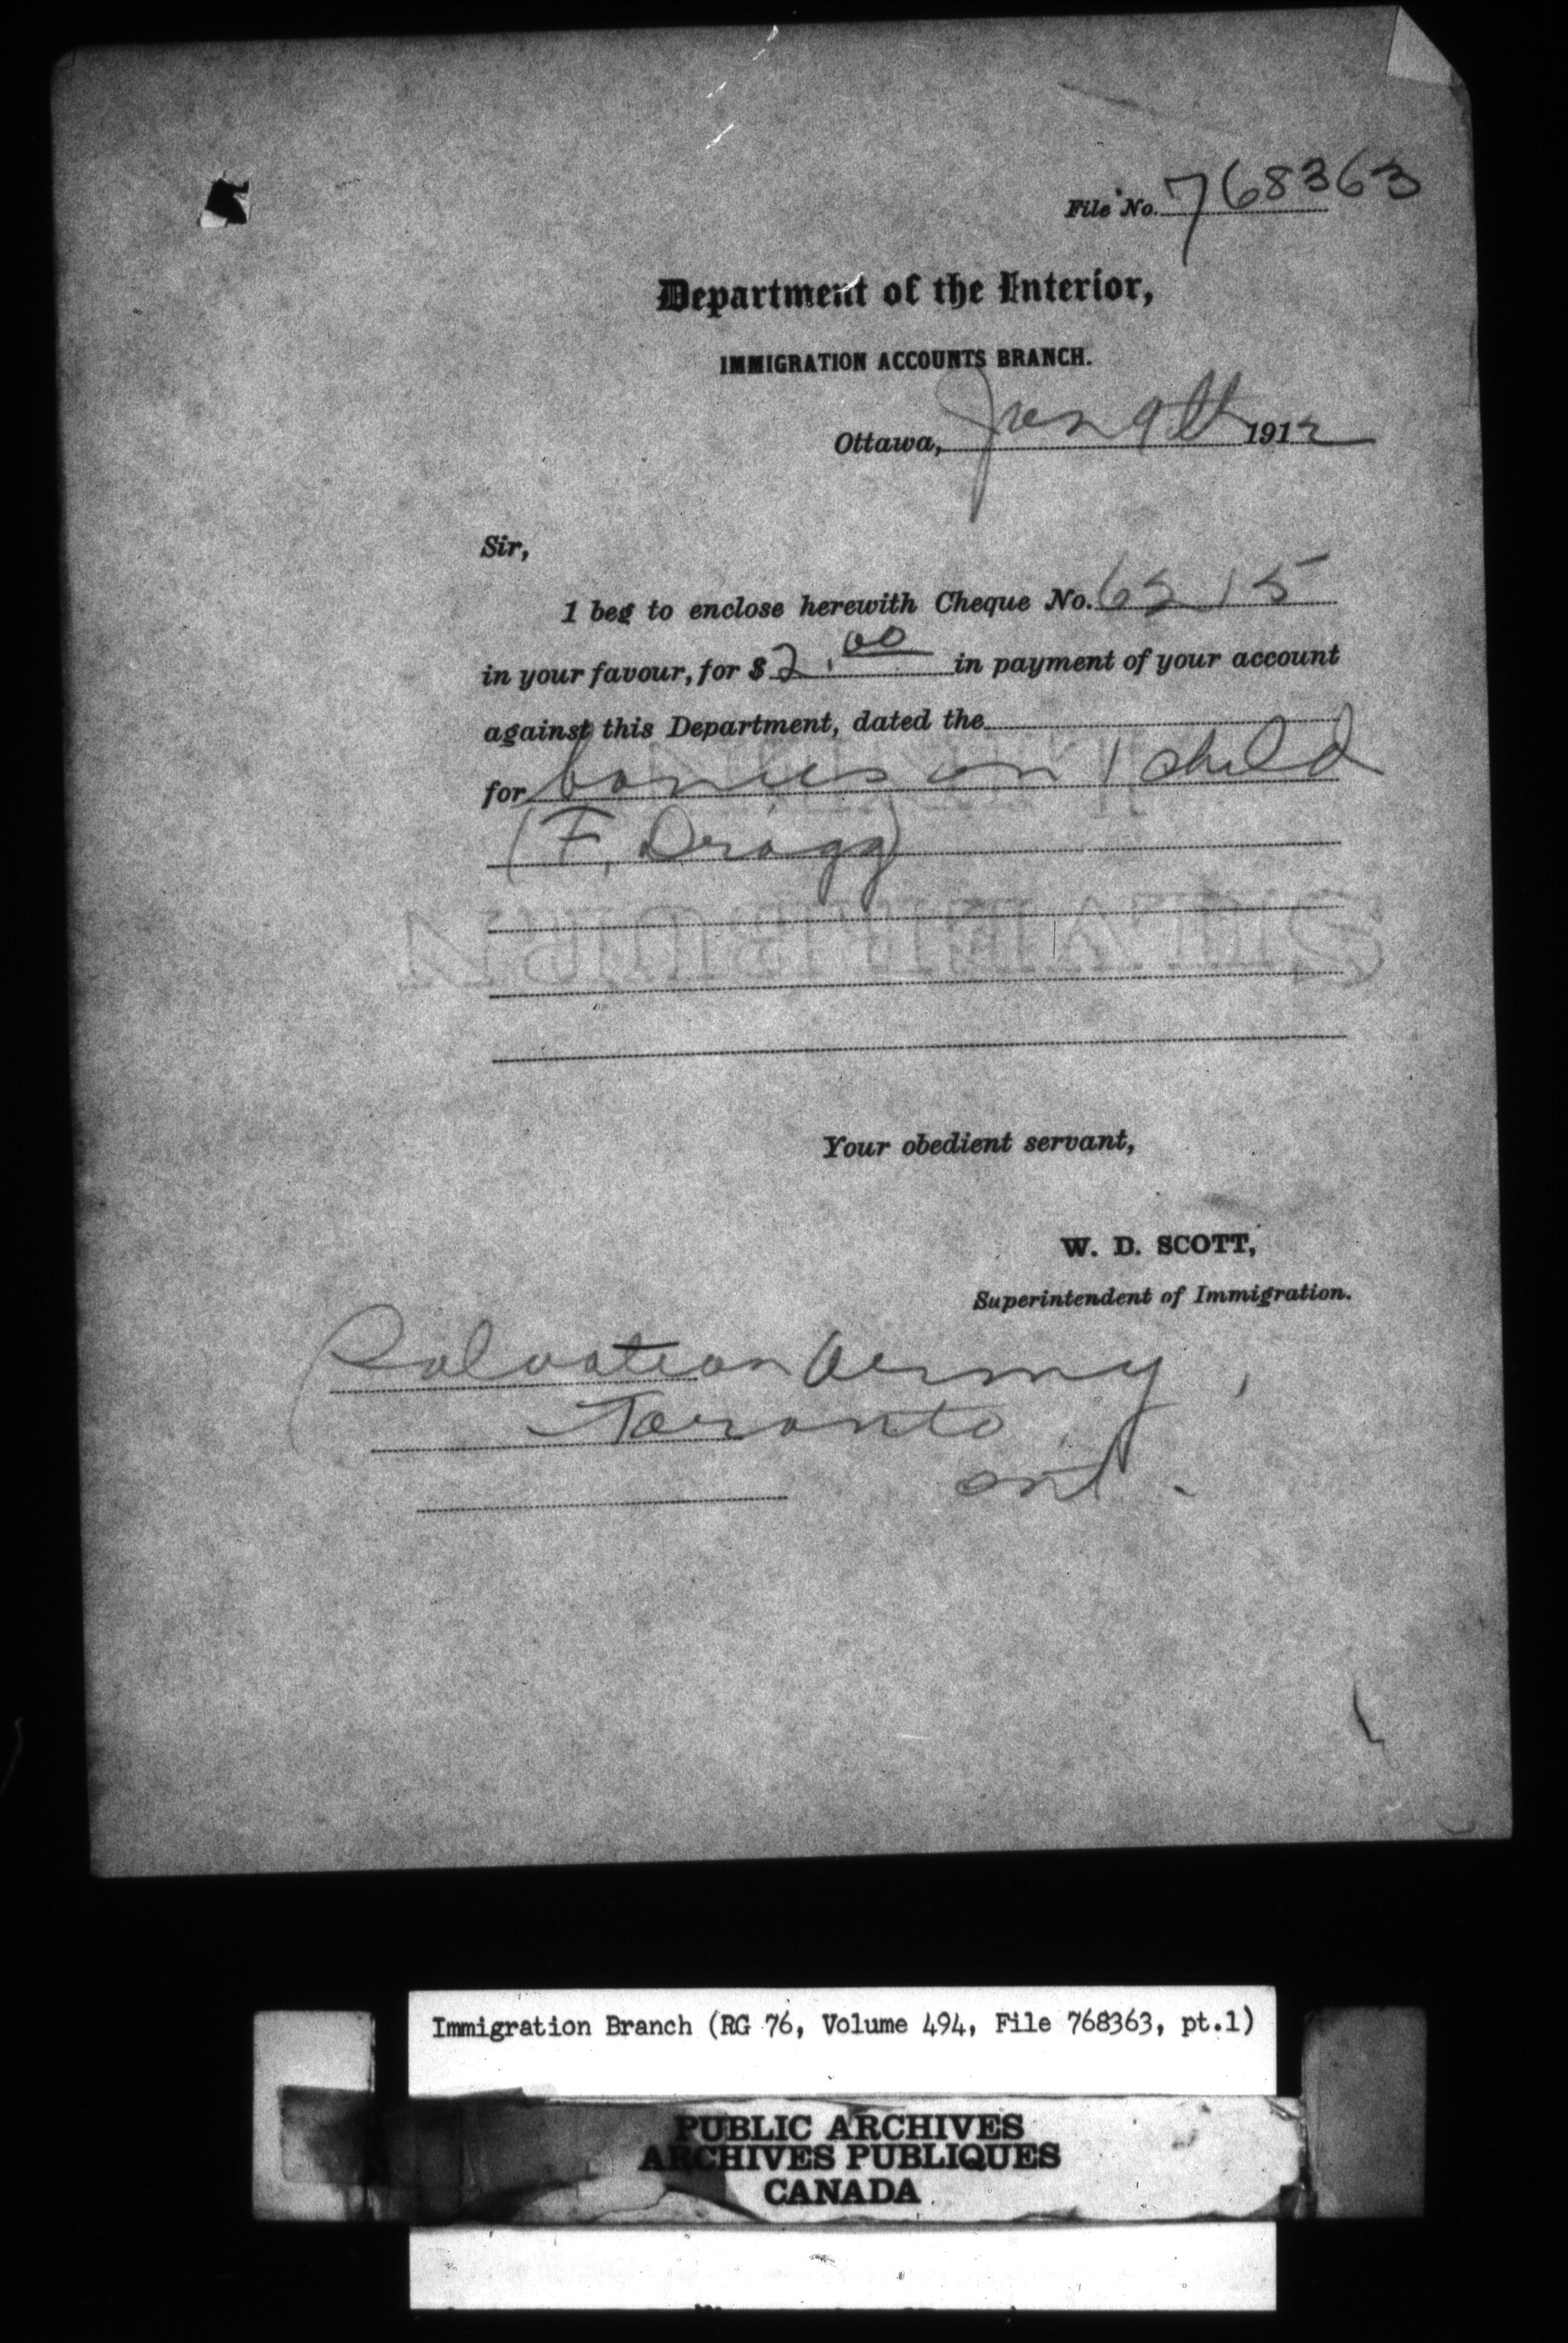 File No. 768363
Department of the Interior,
IMMIGRATION ACCOUNTS BRANCH.
Ottawa, Jan 9th 1912
Sir,
I beg to enclose herewith Cheque No. 6215
in your favour, for $ 2.00 in payment of your account
against this Department, dated the
for bonus on 1 child
(F. Dragg)
Your obedient servant,
W. D. SCOTT,
Superintendent of Immigration.
Salvation Army,
Toronto
Ont.
Immigration Branch (RG 76, Volume 494, File 768363, pt.1)
PUBLIC ARCHIVES
ARCHIVES PUBLIQUES
CANADA